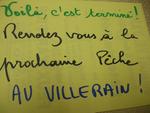 Voilà, c'est terminé!
Rendez vous à la
prochaine Pêche
AU VILLERAIN!